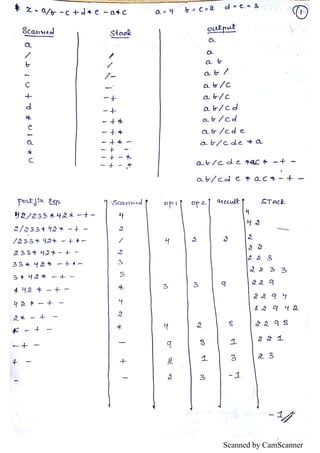 * x = a/b - c + d * e - a*c    a = 4   b = c = 2   d = e = 3
1
Scanned   Stack   output
a   a
/   /   a
b   /   a b
-   /-   a b /
c   -   a b / c
+   -+   a b / c
d   -+   a b / c d
*   -+*   a b / c d
e   -+*   a b / c d e
-   -+*-   a b / c d e * a
a   -+-
*   -+-*
c   -+-*   a b / c d e * a c * - + -
a b / c d e * a c * - + -
postfix Exp   Scanned   op1   op2   result   STACK
42/233*42*-+-   4   4
2/233*42*-+-   2   4 2
/233*42*-+-   /   4   2   2   2
233*42*-+-   2   2 2
33*42*-+-   3   2 2 3
3*42*-+-   3   2 2 3 3
*42*-+-   *   3   3   9   2 2 9
42*-+-   4   2 2 9 4
2*-+-   2   2 2 9 4 2
*-+-   *   4   2   8   2 2 9 8
-+-   -   9   8   1   2 2 1
+-   +   2   1   3   2 3
-   -   2   3   -1
-1//
Scanned by CamScanner